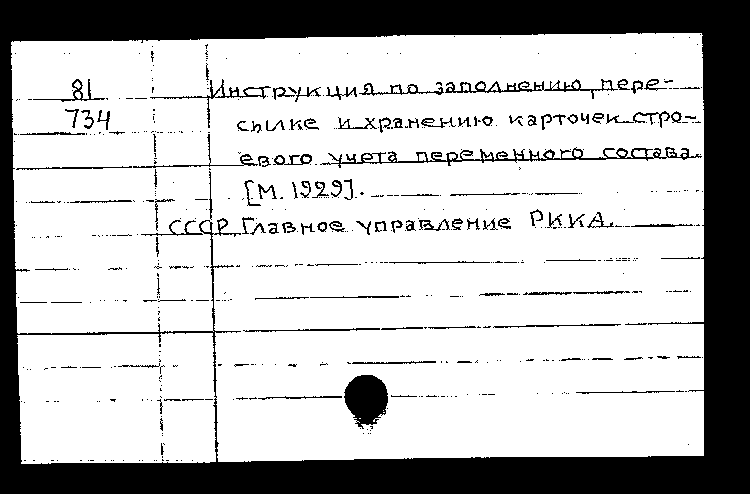 81
734
Инструкция по заполнению, пере-
сылке и хранению карточек стро-
евого учета переменного состава.
[М. 1929].
СССР. Главное управление РККА.